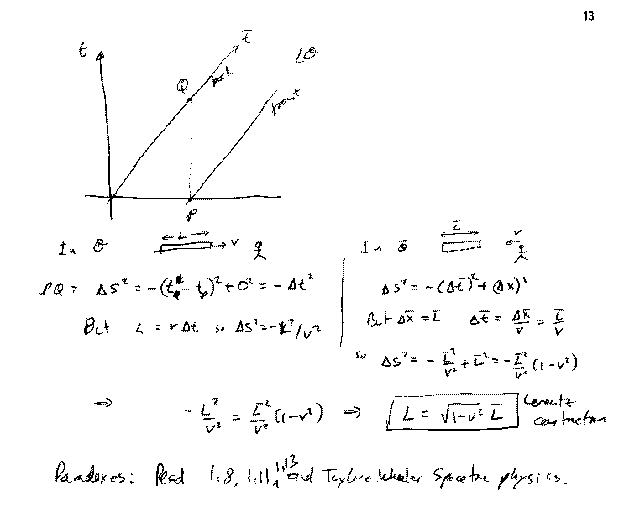 13
t
t̄
Q
back
front
P
In O
L
v
PQ: Δs² = -(t_Q - t_P)² + 0² = -Δt²
But L = vΔt so Δs² = -L²/v²
In Ō
L̄
v
Δs² = -(Δt̄)² + (Δx̄)²
But Δx̄ = L̄ Δt̄ = Δx̄/v = L̄/v
so Δs² = -L̄²/v² + L̄² = -L̄²/v² (1-v²)
⇒ -L²/v² = -L̄²/v² (1-v²) ⇒ L = √(1-v²) L̄ Lorentz contraction
Paradoxes: Read 1.8, 1.11, 1.13 and Taylor Wheeler Spacetime physics.